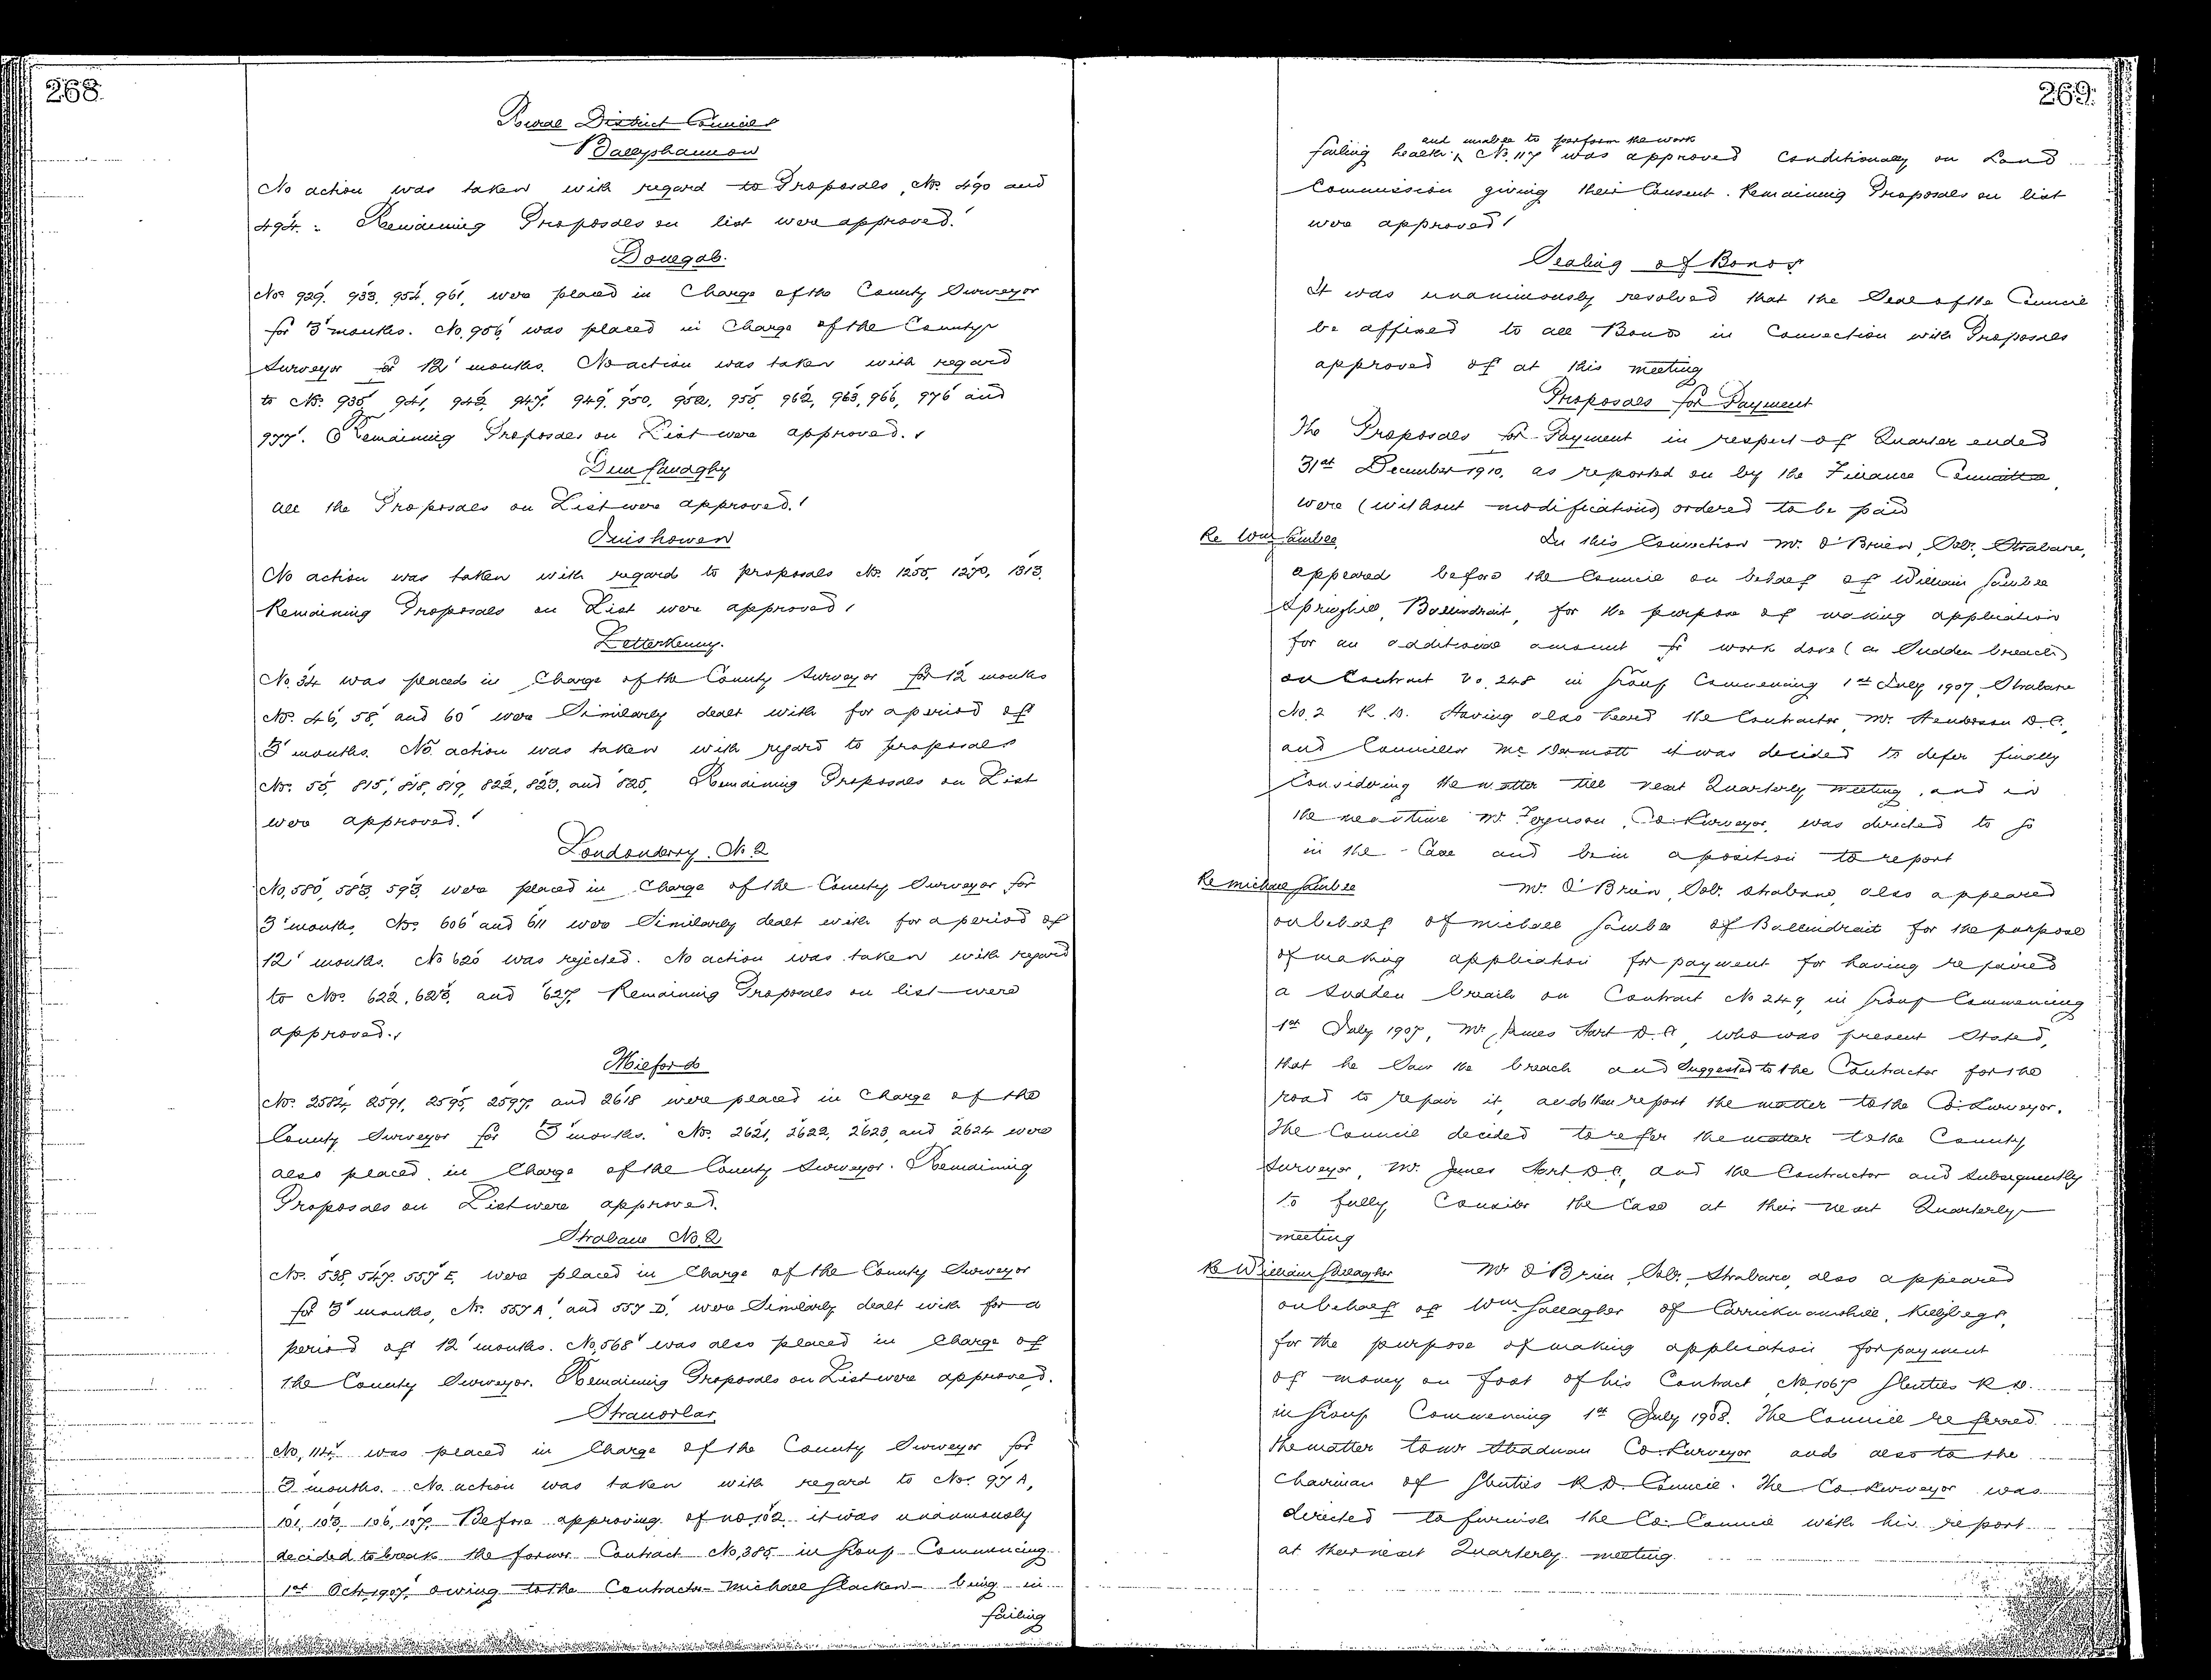 268
Rural District Councils
Ballyshannon
No action was taken with regard to Proposals, Nos. 490 and
494. Remaining Proposals on list were approved.
Donegal.
Nos 929, 933, 954, 961, were placed in Charge of the County Surveyor
for 3 months. No. 906 was placed in Charge of the County
Surveyor for 12 months. No action was taken with regard
to Nos. 935, 941, 942, 947, 949, 950, 952, 955, 962, 963, 966, 976 and
977. Remaining Proposals on List were approved.
Dunfanaghy
All the Proposals on List were approved.
Inishowen
No action was taken with regard to proposals Nos. 1255, 1270, 1313.
Remaining Proposals on List were approved
Letterkenny.
No. 34 was placed in Charge of the County Surveyor for 12 months
Nos. 46, 58, and 60 were Similarly dealt with for a period of
3 months. No action was taken with regard to proposals
Nos. 55, 815, 818, 819, 822, 823, and 825. Remaining Proposals on List
were approved.
Londonderry. No 2
No, 580, 583, 593, were placed in Charge of the County Surveyor for
3 months, Nos. 606 and 611 were Similarly dealt with for a period of
12 months. No 620 was rejected. No action was taken with regard
to Nos. 622, 623, and 627. Remaining Proposals on list were
approved.
Milford
Nos. 2584, 2591, 2595, 2597, and 2618 were placed in Charge of the
County Surveyor for 3 months. Nos. 2621, 2622, 2623, and 2624 were
also placed in Charge of the County Surveyor. Remaining
Proposals on List were approved.
Strabane No 2
Nos. 538, 547, 557 E, were placed in Charge of the County Surveyor
for 3 months, Nos. 557 A, and 557 D, were Similarly dealt with for a
period of 12 months. No, 568 was also placed in Charge of
the County Surveyor. Remaining Proposals on List were approved.
Stranorlar
No, 114, was placed in Charge of the County Surveyor for
3 months. No action was taken with regard to Nos. 97 A,
101, 103, 106, 107. Before approving of no 102 it was unanimously
decided to break the former Contract No, 385 in Group Commencing
1st Oct. 1907, owing to the Contractor Michael Slacken being in
failing
269.
failing health, and unable to perform the work No. 117 was approved Conditionally on Land
Commission giving their Consent. Remaining Proposals on list
were approved
Sealing of Bonds
It was unanimously resolved that the Seal of the Council
be affixed to all Bonds in Connection with Proposals
approved of at this meeting
Proposals for Payment
The Proposals for Payment in respect of Quarter ended
31st December 1910, as reported on by the Finance Committee,
were (without modifications) ordered to be paid
Re Wm Gamble
In this Connection Mr. O'Brien, Solr, Strabane,
appeared before the Council on behalf of William Gamble
Springhill, Ballindrait, for the purpose of making application
for an additional amount for work done (a Sudden breach)
on Contract No. 248 in Group Commencing 1st July 1907, Strabane
No. 2 R. D. Having also heard the Contractor, Mr. Henderson D.C.,
and Councillor McDermott it was decided to defer finally
Considering the matter till next Quarterly meeting, and in
the meantime Mr. Ferguson, Co. Surveyor, was directed to go
in the Case and be in a position to report
Re Michael Gamble
Mr. O'Brien, Solr. Strabane, also appeared
on behalf of Michael Gamble of Ballindrait for the purpose
of making application for payment for having repaired
a Sudden breach on Contract No 249 in Group Commencing
1st July 1907, Mr. James Hart D.C, who was present Stated,
that he Saw the breach and Suggested to the Contractor for the
road to repair it, and then report the matter to the Co. Surveyor.
The Council decided to refer the matter to the County
Surveyor, Mr. James Hart D.C, and the Contractor and Subsequently
to fully Consider the Case at their next Quarterly
meeting
Re William Gallagher
Mr O'Brien, Solr, Strabane, also appeared
on behalf of Wm Gallagher of Killybegs,
for the purpose of making application for payment
of money on foot of his Contract No 1067 Glenties R D.
in Group Commencing 1st July 1908. The Council referred
the matter to Mr Stadman Co. Surveyor and also to the
Chairman of Glenties R D. Council. The Co Surveyor was
directed to furnish the Co. Council with his report
at their next Quarterly meeting.